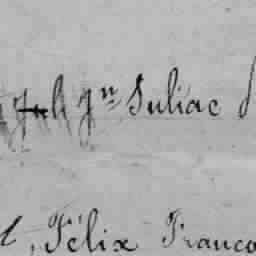 Jh Jn Suliac
, Félix Franco